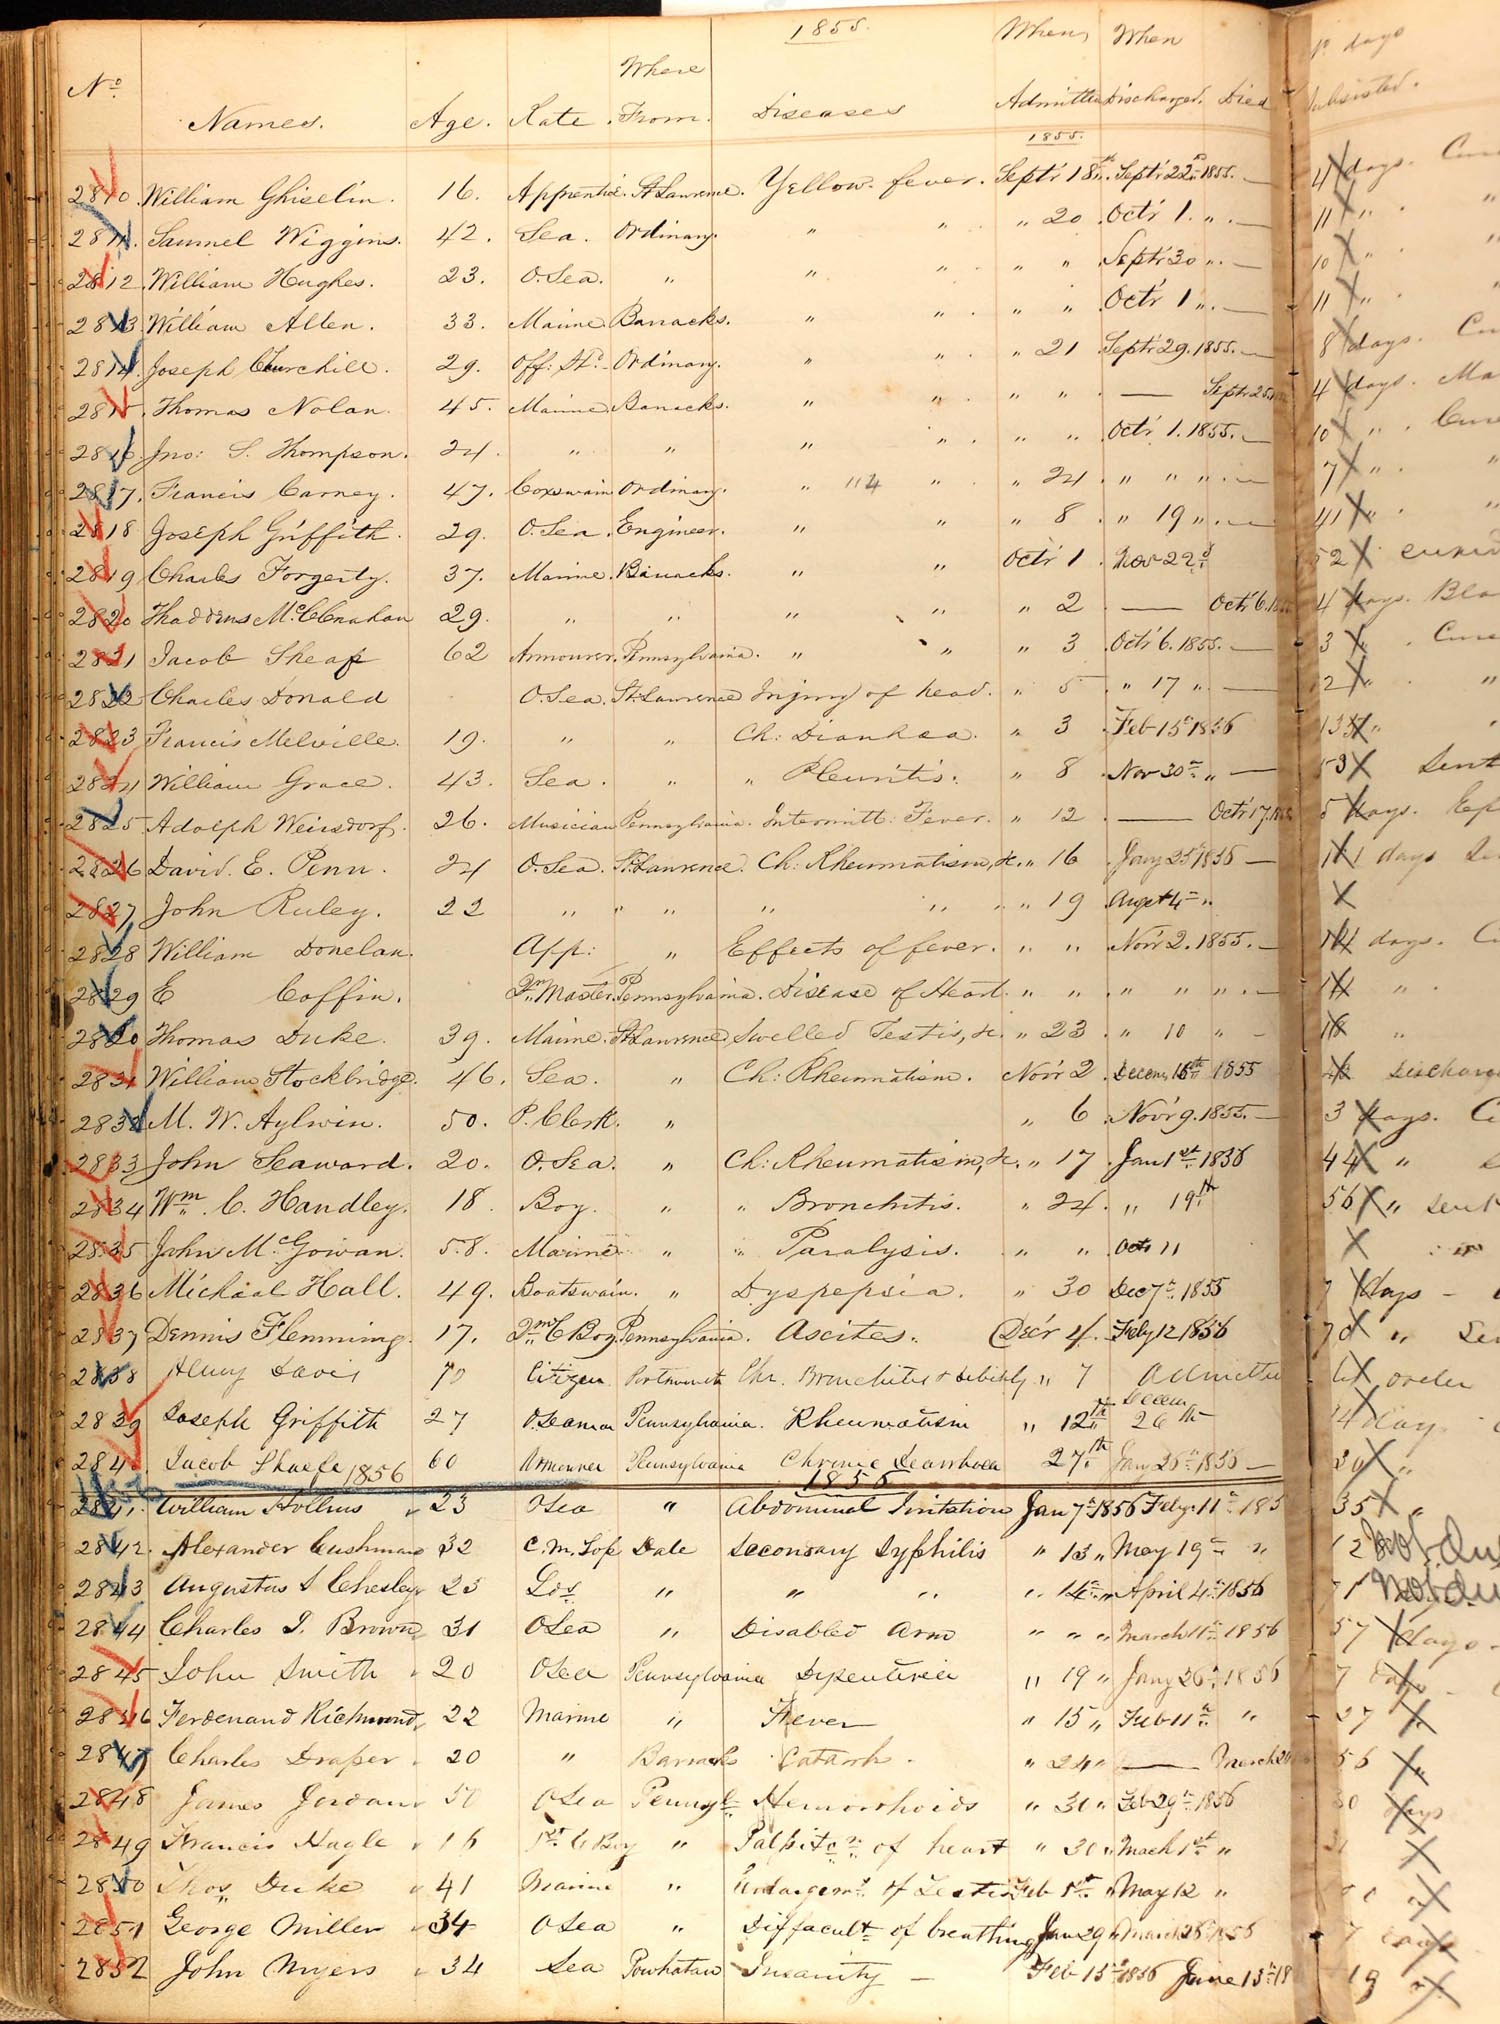 1855.
No. Names. Age. Rate. Where From. Diseases When Admitted When Discharged. Died No days Subsisted.
1855.
2810. William Ghiselin. 16. Apprentice. St Lawrence. Yellow fever. Septr 18th. Septr 22nd 1855. — 4 days.
2811. Samuel Wiggins. 42. Sea. Ordinary. " " " 20 Octr 1. " — 11 "
2812. William Hughes. 23. O. Sea. " " " " " Septr 30 " — 10 "
2813. William Allen. 33. Marine Barracks. " " " " Octr 1 " — 11 "
2814. Joseph Churchill. 29. Off: St. Ordinary. " " " 21 Septr 29. 1855. — 8 days.
2815. Thomas Nolan. 45. Marine Barracks. " " " " — Septr 25 4 days.
2816. Jno: S. Thompson. 24. " " " " " " Octr 1. 1855. — 10 "
2817. Francis Carney. 47. Coxswain Ordinary. " 114 " " 24 " " " — 7 "
2818 Joseph Griffith. 29. O. Sea. Engineer. " " " 8 " 19 " — 41 "
2819 Charles Forgerty. 37. Marine. Barracks. " " Octr 1 Nov 22d 52 cured
2820 Thaddeus McClenahan 29. " " " " " 2 — Octr 6. 4 days.
2821 Jacob Sheaf 62 Armourer. Pennsylvania. " " " 3 Octr 6. 1855. — 3 "
2822 Charles Donald O. Sea. St. Lawrence Injury of head. " 5 " 17 " — 12 "
2823 Francis Melville. 19. " " Ch: Diarrhea. " 3 Feb 15th 1856 135 "
2824 William Grace. 43. Sea. " " Pleuritis. " 8 Nov 30th " — 53 Sent
2825 Adolph Weirsdorf. 26. Musician Pennsylvania. Intermitt: Fever. " 12 — Octr 17. 5 days.
2826 David. E. Penn. 24 O. Sea. St. Lawrence. Ch: Rheumatism, &c. " 16 Jany 25th 1856 — 101 days
2827 John Ruley. 22 " " " " " " 19 Augst 4th "
2828 William Donelan. App: " Effects of fever. " " Novr 2. 1855. — 14 days.
2829 E Coffin. Qr. Master. Pennsylvania. Disease of Heart. " " " " " — 14 "
2830 Thomas Duke. 39. Marine. St Lawrence, Swelled Testis, &c. " 23 " 10 " - 18 "
2831 William Stockbridge. 46. Sea. " Ch: Rheumatism. Novr 2 Decem 16th 1855
2832 M. W. Aylwin. 50. P. Clerk. " " 6 Novr 9. 1855. — 3 days.
2833 John Seaward. 20. O. Sea. " Ch: Rheumatism, &c. " 17 Jan 1st 1856 44 "
2834 Wm. C. Handley. 18. Boy. " " Bronchitis. " 24. " 19th 56 " Sent
2835 John McGowan. 58. Marine " " Paralysis. " " Oct 11
2836 Michael Hall. 49. Boatswain. " Dyspepsia. " 30 Dec 7th 1855 7 days -
2837 Dennis Flemming. 17. 2nd C Boy Pennsylvania. Ascites. Decr 4. Feby 12 1856 70 "
2838 Henry Davis 70 Citizen Portsmouth Chr. Bronchitis & debility " 7 Admitted order
2839 Joseph Griffith 27 O. Seaman Pennsylvania. Rheumatism " 12th Decem 26th 14 day
2840. Jacob Shaefe 60 Armourer Pennsylvania Chronic Dearrhoea 27th Jany 26th 1856 — 30 "
1856 1856
2841. William Hollins 23 O Sea " Abdominal Irritation Jan 7th 1856 Feby 11th 185 35 "
2842. Alexander Cushman 32 C. M. Top Dale Secondary Syphilis " 13 " May 19th " 12
2843 Augustus S Chesley 25 Lds " " " " 14th " April 4th 1856 71
2844 Charles J. Brown 31 O Sea " Disabled Arm " " " March 11th 1856 57 days
2845 John Smith 20 O Sea Pennsylvania Dysenteria " 19 " Jany 26th 1856 7 days
2846 Ferdenand Richmond 22 Marine " Fever " 15 " Feb 11th " 27 "
2847 Charles Draper 20 " Barracks Catarrh. " 24 " — March 20 56 "
2848 James Jordan 50 O Sea Pennsyl Hemorrhoids " 30 " Feb 29th 1856 30 days
2849 Francis Nagle 16 1st C Boy " Palpitatn of heart " 30 " Mach 1st "
2850 Thos Duke 41 Marine " Enlargemt of Testis Feb 1st " May 12 "
2851 George Miller 34 O Sea " Diffacult of breathing Jan 29 " March 28th 1856 7 days
2852 John Myers 34 Sea Powhatan Insanity — Feb 13th 1856 June 13th 18 19 "